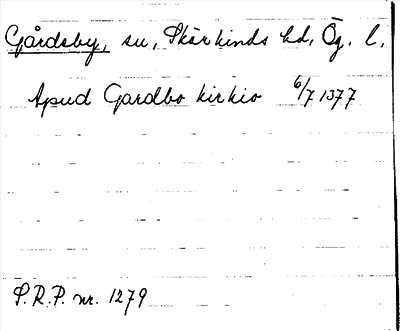 Gårdeby, su, Skärkinds hd, Ög. l.
Apud Gardbo kirkio 6/7 1377
S.R.P. nr. 1279